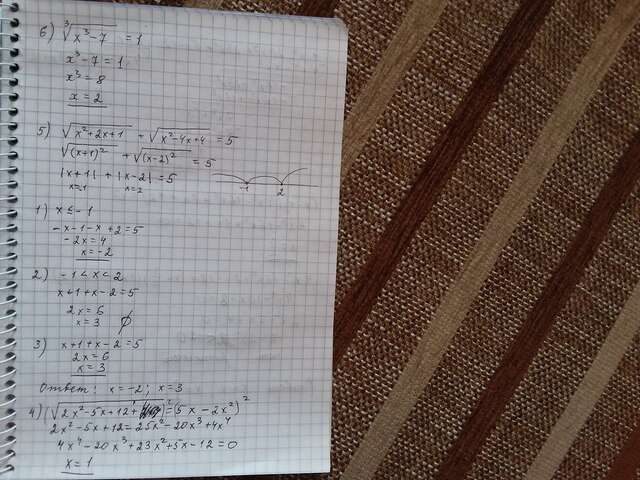 6) ∛x³-7 = 1
x³-7 = 1
x³ = 8
x = 2
5) √x²+2x+1 + √x²-4x+4 = 5
√(x+1)² + √(x-2)² = 5
|x+1| + |x-2| = 5
x=-1 x=2
-1 2
1) x ≤ -1
-x-1-x+2=5
-2x=4
x=-2
2) -1<x<2
x+1+x-2=5
2x=6
x=3 ∅
3) x+1+x-2=5
2x=6
x=3
Ответ: x=-2; x=3
2x²-5x+12=25x²-20x³+4x⁴
4x⁴-20x³+23x²+5x-12=0
x=1